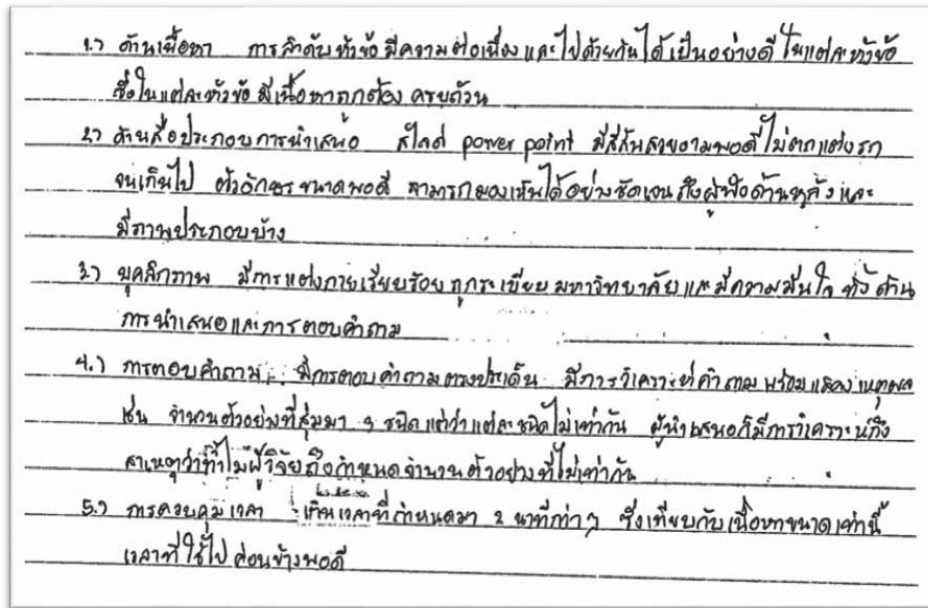 1.) ด้านเนื้อหา การลำดับหัวข้อ มีความต่อเนื่อง และไปด้วยกันได้เป็นอย่างดี ในแต่ละหัวข้อ
ซึ่งในแต่ละหัวข้อ มีเนื้อหาถูกต้อง ครบถ้วน
2.) ด้านสื่อประกอบการนำเสนอ สไลด์ power point มีสีสันสวยงามพอดี ไม่ตกแต่งรก
จนเกินไป ตัวอักษรขนาดพอดี สามารถมองเห็นได้อย่างชัดเจน ถึงผู้ฟังด้านหลัง และ
มีภาพประกอบบ้าง
3.) บุคลิกภาพ มีการแต่งกายเรียบร้อย ถูกระเบียบ มหาวิทยาลัย และมีความมั่นใจ ทั้งด้าน
การนำเสนอและการตอบคำถาม
4.) การตอบคำถาม มีการตอบคำถามตรงประเด็น มีการวิเคราะห์คำถาม พร้อมแสดงเหตุผล
เช่น จำนวนตัวอย่างที่สุ่มมา 9 ชนิด แต่ว่าแต่ละชนิดไม่เท่ากัน ผู้นำเสนอก็มีการวิเคราะห์ถึง
สาเหตุว่าทำไมผู้วิจัยถึงกำหนดจำนวนตัวอย่างที่ไม่เท่ากัน
5.) การควบคุมเวลา เกินเวลาที่กำหนดมา 2 นาทีกว่าๆ ซึ่งเทียบกับเนื้อหาขนาดเท่านี้
เวลาที่ใช้ไป ค่อนข้างพอดี